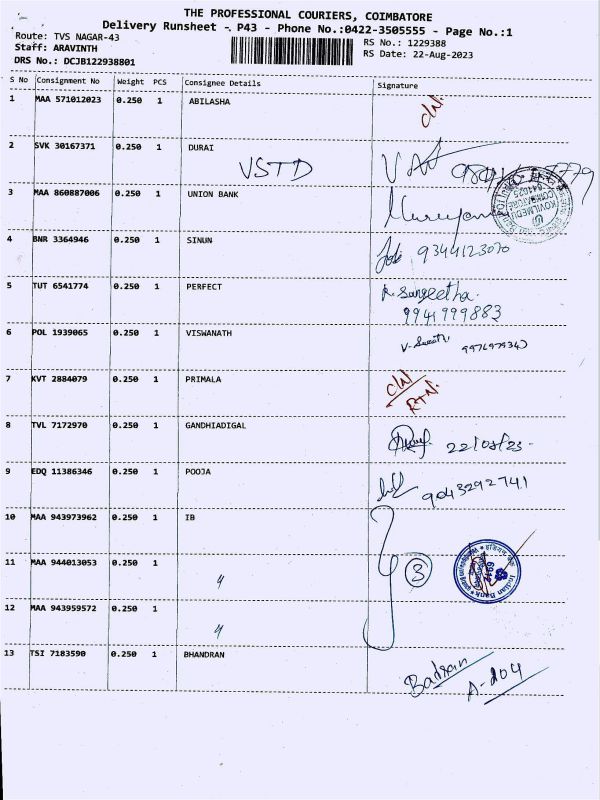 THE PROFESSIONAL COURIERS, COIMBATORE
Delivery Runsheet - P43 - Phone No.:0422-3505555 - Page No.:1
Route: TVS NAGAR-43
RS No.: 1229388
Staff: ARAVINTH
RS Date: 22-Aug-2023
DRS No.: DCJB122938801
S No Consignment No Weight PCS Consignee Details Signature
1 MAA 571012023 0.250 1 ABILASHA C/N
2 SVK 30167371 0.250 1 DURAI
VSTD
3 MAA 860887006 0.250 1 UNION BANK
KOVILMEDU
COIMBATORE
641025
4 BNR 3364946 0.250 1 SINUN 9344123070
5 TUT 6541774 0.250 1 PERFECT R. Sangeetha.
9941999883
6 POL 1939065 0.250 1 VISWANATH
7 KVT 2884079 0.250 1 PRIMALA C/N
RTN.
8 TVL 7172970 0.250 1 GANDHIADIGAL 22/08/23-
9 EDQ 11386346 0.250 1 POOJA 9043292741
10 MAA 943973962 0.250 1 IB
11 MAA 944013053 0.250 1 〃 3
Indian Bank
12 MAA 943959572 0.250 1 〃
13 TSI 7183590 0.250 1 BHANDRAN Badran
A-204